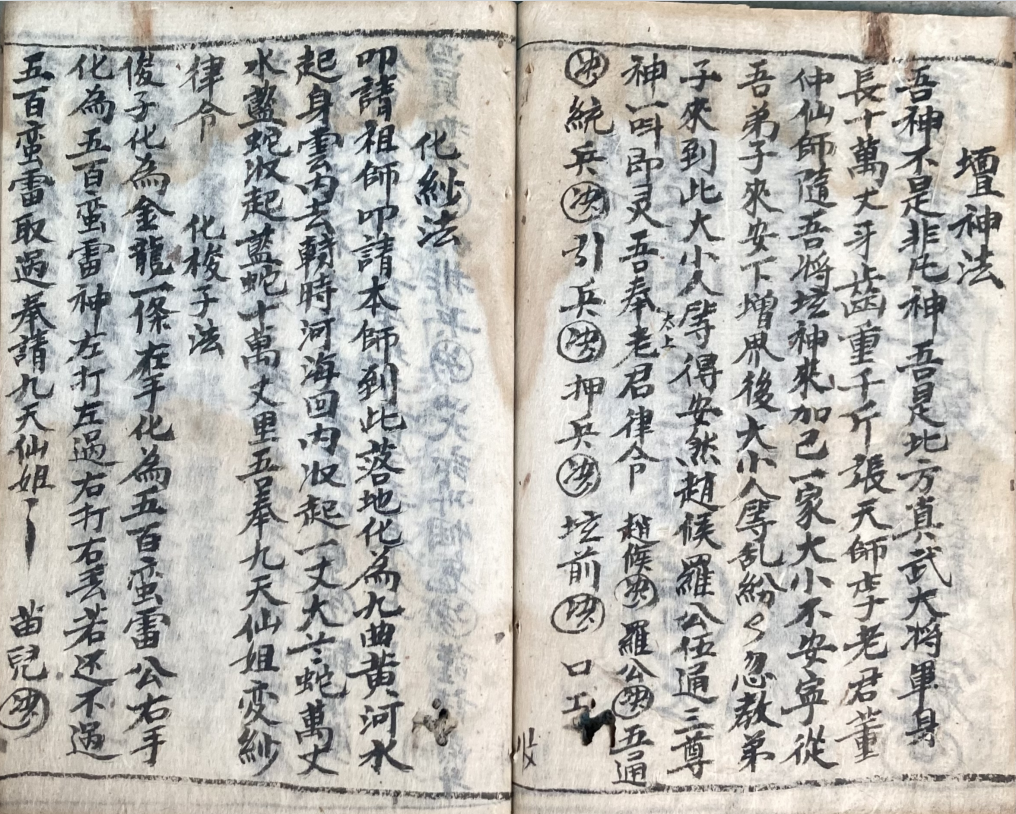 壇神法
吾神不是非凡神吾是北方真武大将軍身
長十萬丈牙齒重千斤張天師李老君董
仲仙師隨吾将坛神來加己一家大小不安宁從
吾弟子來安下增界後大小人等乱紛々忽教弟
子來到此大小人等得安然趙候羅公伍通三尊
神一叫即灵吾奉太上老君律令 趙候決羅公決五通
決統兵決引兵決押兵決坛前決口工
收
化紗法
叩請祖師叩請本師到此落地化為九曲黄河水
起身雲内去轉時河海回内收起一丈大兰蛇萬丈
水藍蛇收起藍蛇十萬丈里吾奉九天仙姐变紗
律令 化梭子法
俊子化為金龍一條在手化為五百蛮雷公右手
化為五百蛮雷神左打左過右打右丢若还不過
五百蛮雷取過奉請九天仙姐 苗兒決